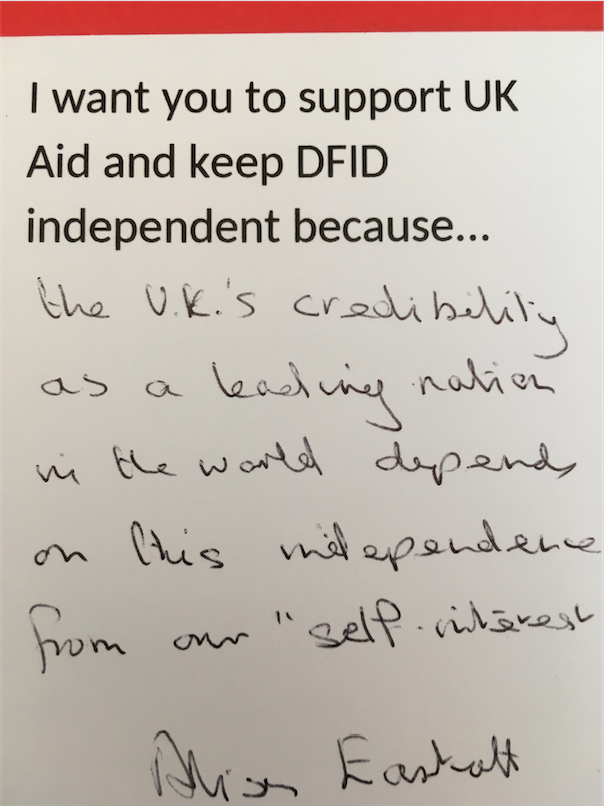 I want you to support UK
Aid and keep DFID
independent because...
the U.K.'s credibility
as a leading nation
in the world depends
on this independence
from our "self-interest
Alison